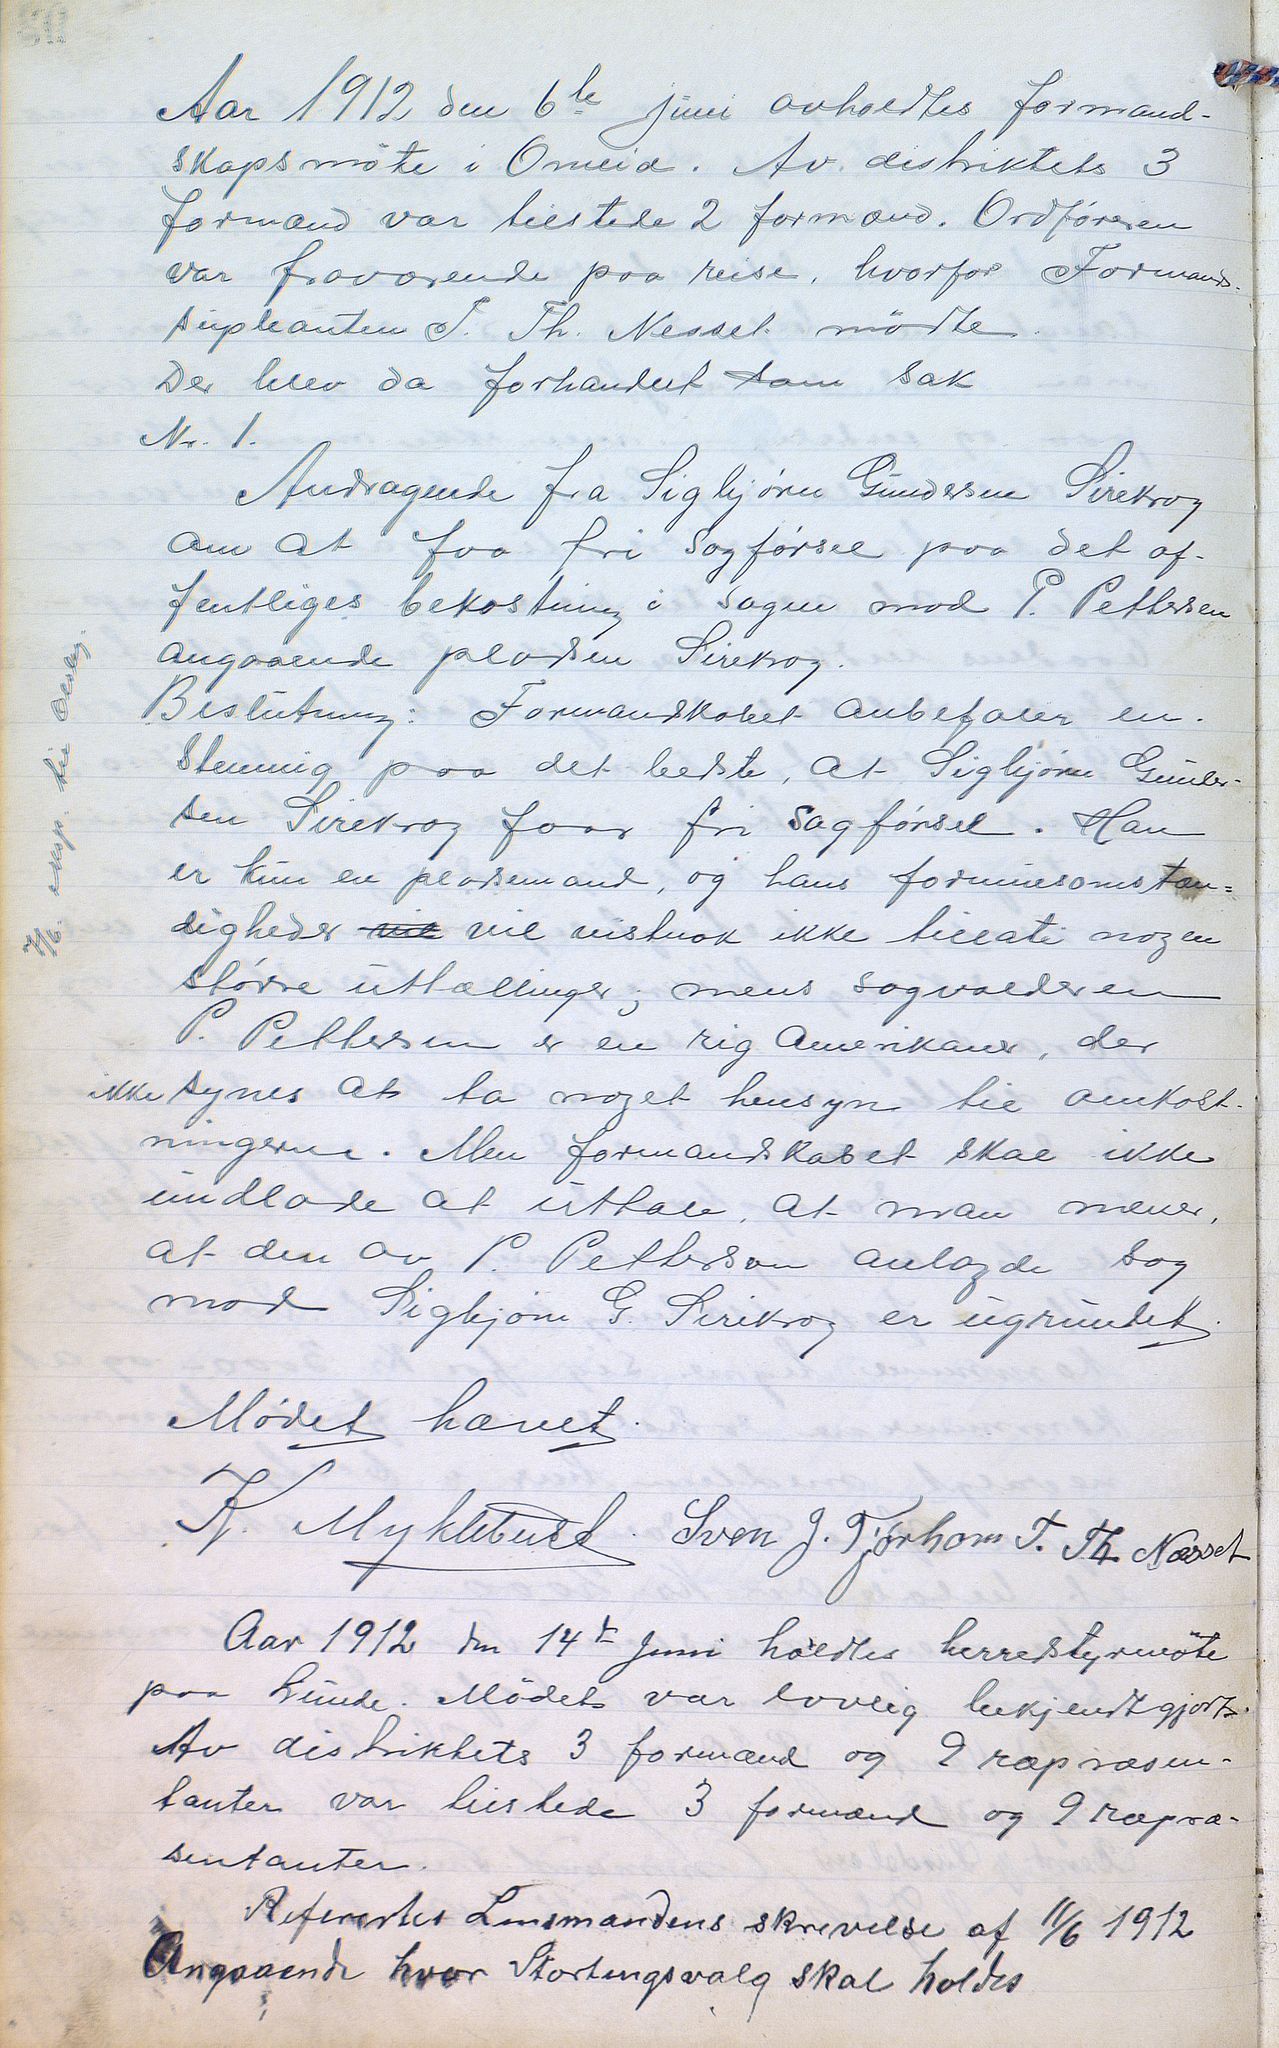 Aar 1912 den 6te juni avholdtes formand-
skapsmöte i Omeid. Av distriktets 3
formænd var tilstede 2 formænd. Ordføreren
var fraværende paa reise, hvorfor Formands-
supleanten T. Th. Nesset mödte.
Der blev da forhandlet som sak
Nr. 1.
Andragende fra Sigbjørn Gundersen Sirekrog
om at faa fri sagførsel paa det of-
fentliges bekostning i sagen mod P. Pettersen
angaaende pladsen Sirekrog.
Beslutning: Formandskabet anbefaler en-
stemmig paa det bedste, at Sigbjørn Gunder-
sen Sirekrog faar fri sagførsel. Han
er kun en pladsemand, og hans formuesomstæn-
digheder vil vil vistnok ikke tillate nogen
større uttællinger; mens sagvolderen
P. Pettersen er en rig Amerikaner, der
ikke synes at ta noget hensyn til omkost-
ningerne. Men formandskabet skal ikke
undlade at uttale, at man mener,
at den av P. Petterson anlagde sag
mod Sigbjørn G. Sirikrog er ugrundet.
7/6. eksp. til
Mödet hævet.
K. Myklebust. Sven J. Tjørhom T. Th Næsset
Aar 1912 den 14de Juni holdtes herredstyrmöte
paa Lunde. Mödet var lovlig bekjendtgjort.
Av distriktets 3 formænd og 9 ræpræsen-
tanter var tilstede 3 formænd og 9 ræpræ-
sentanter.
Refererdes Lensmandens skrevelse af 11/6 1912
Angaaende hvor Stortingsvalg skal holdes